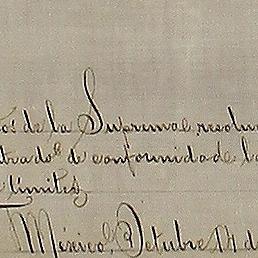 os de la Suprema resolu
trados de conformidad e lo
limites
México, Octubre 14 d